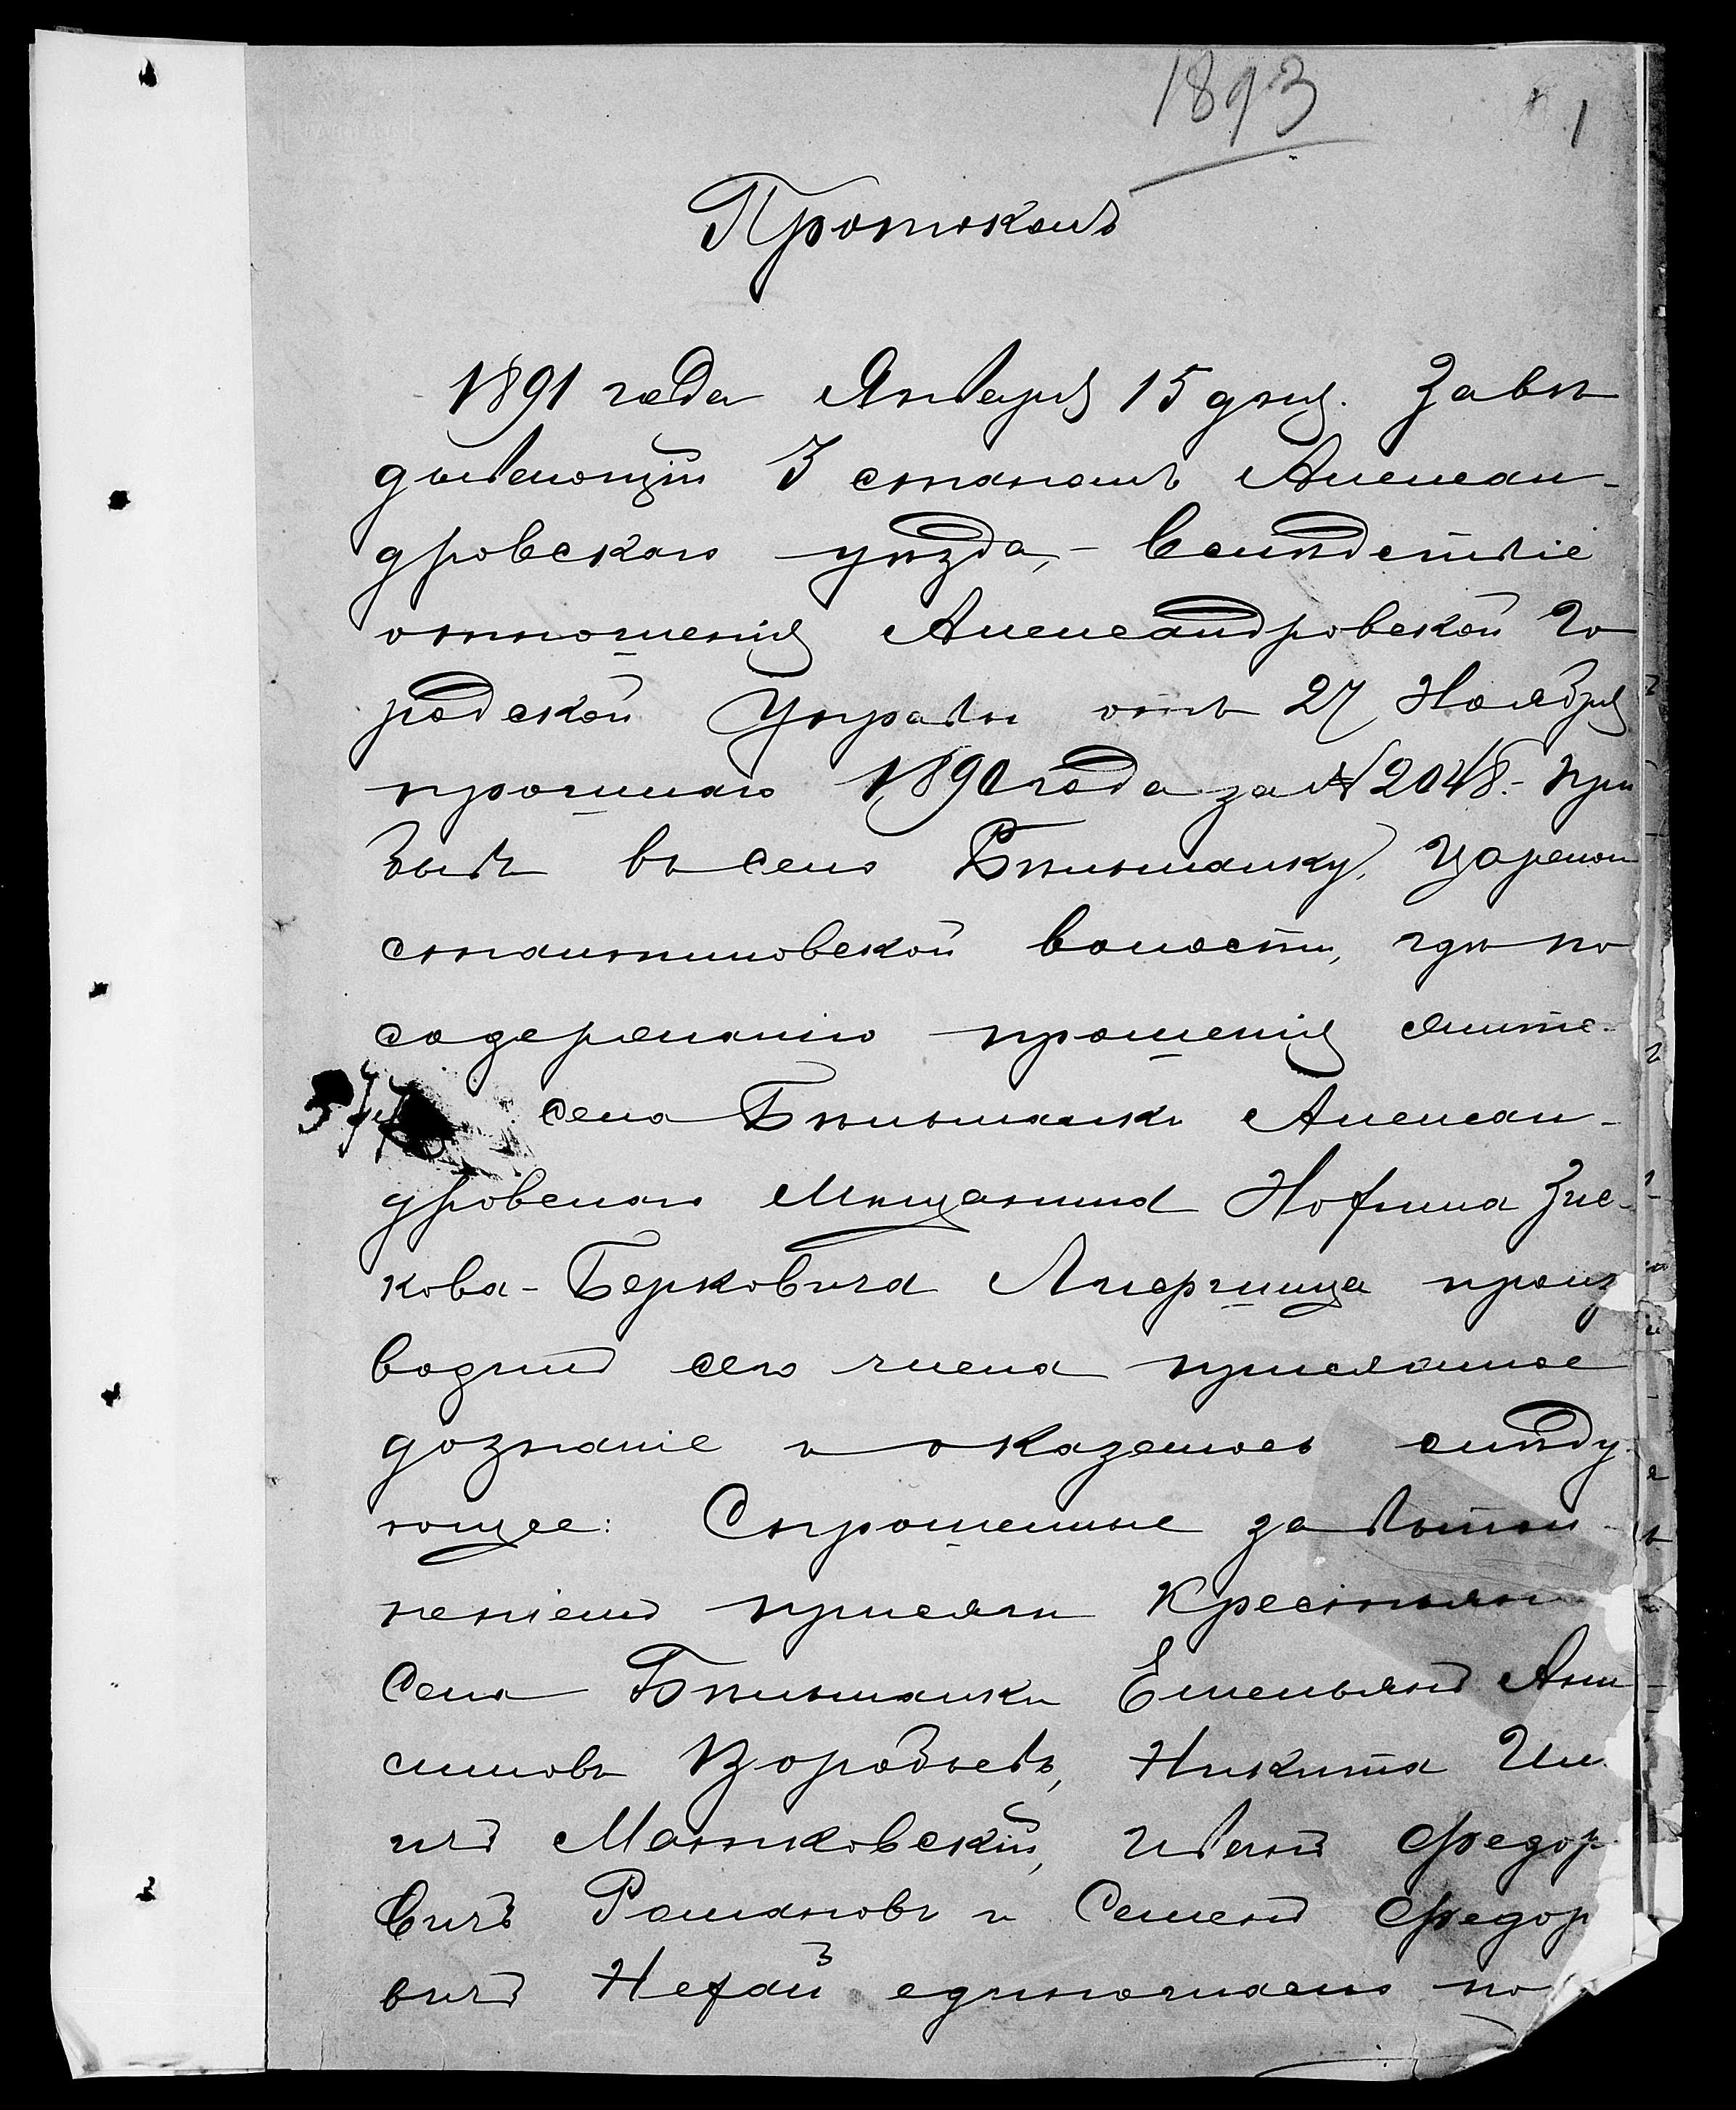 1893
1
Протоколъ
1891 года Января 15 дня. Завѣ
дывающій 3 станомъ Алексан-
дровскаго уѣзда, - вслѣдствіе
отношенія Александровской Го
родской Управы отъ 27 Ноября
прошлаго 1890 года за № 2048. - при
былъ въ село Бѣльманку, Царекон
стантиновской волости, гдѣ по
содержанію прошенія жите-
села Бѣльманки Алексан-
дровскаго мѣщанина
кова-Берковича произ
водилъ сего числа присяжное
дознаніе и оказалось слѣду
ющее: Спрошенные за выпол-
неніемъ присяги Крестьяне
села Бѣльманки Емельянъ Ани
симовъ Воробьевъ, Никита Иль
ичъ Маньковскій, Иванъ Федор
вичъ Романовъ и Семенъ Федор
вичъ единогласно по